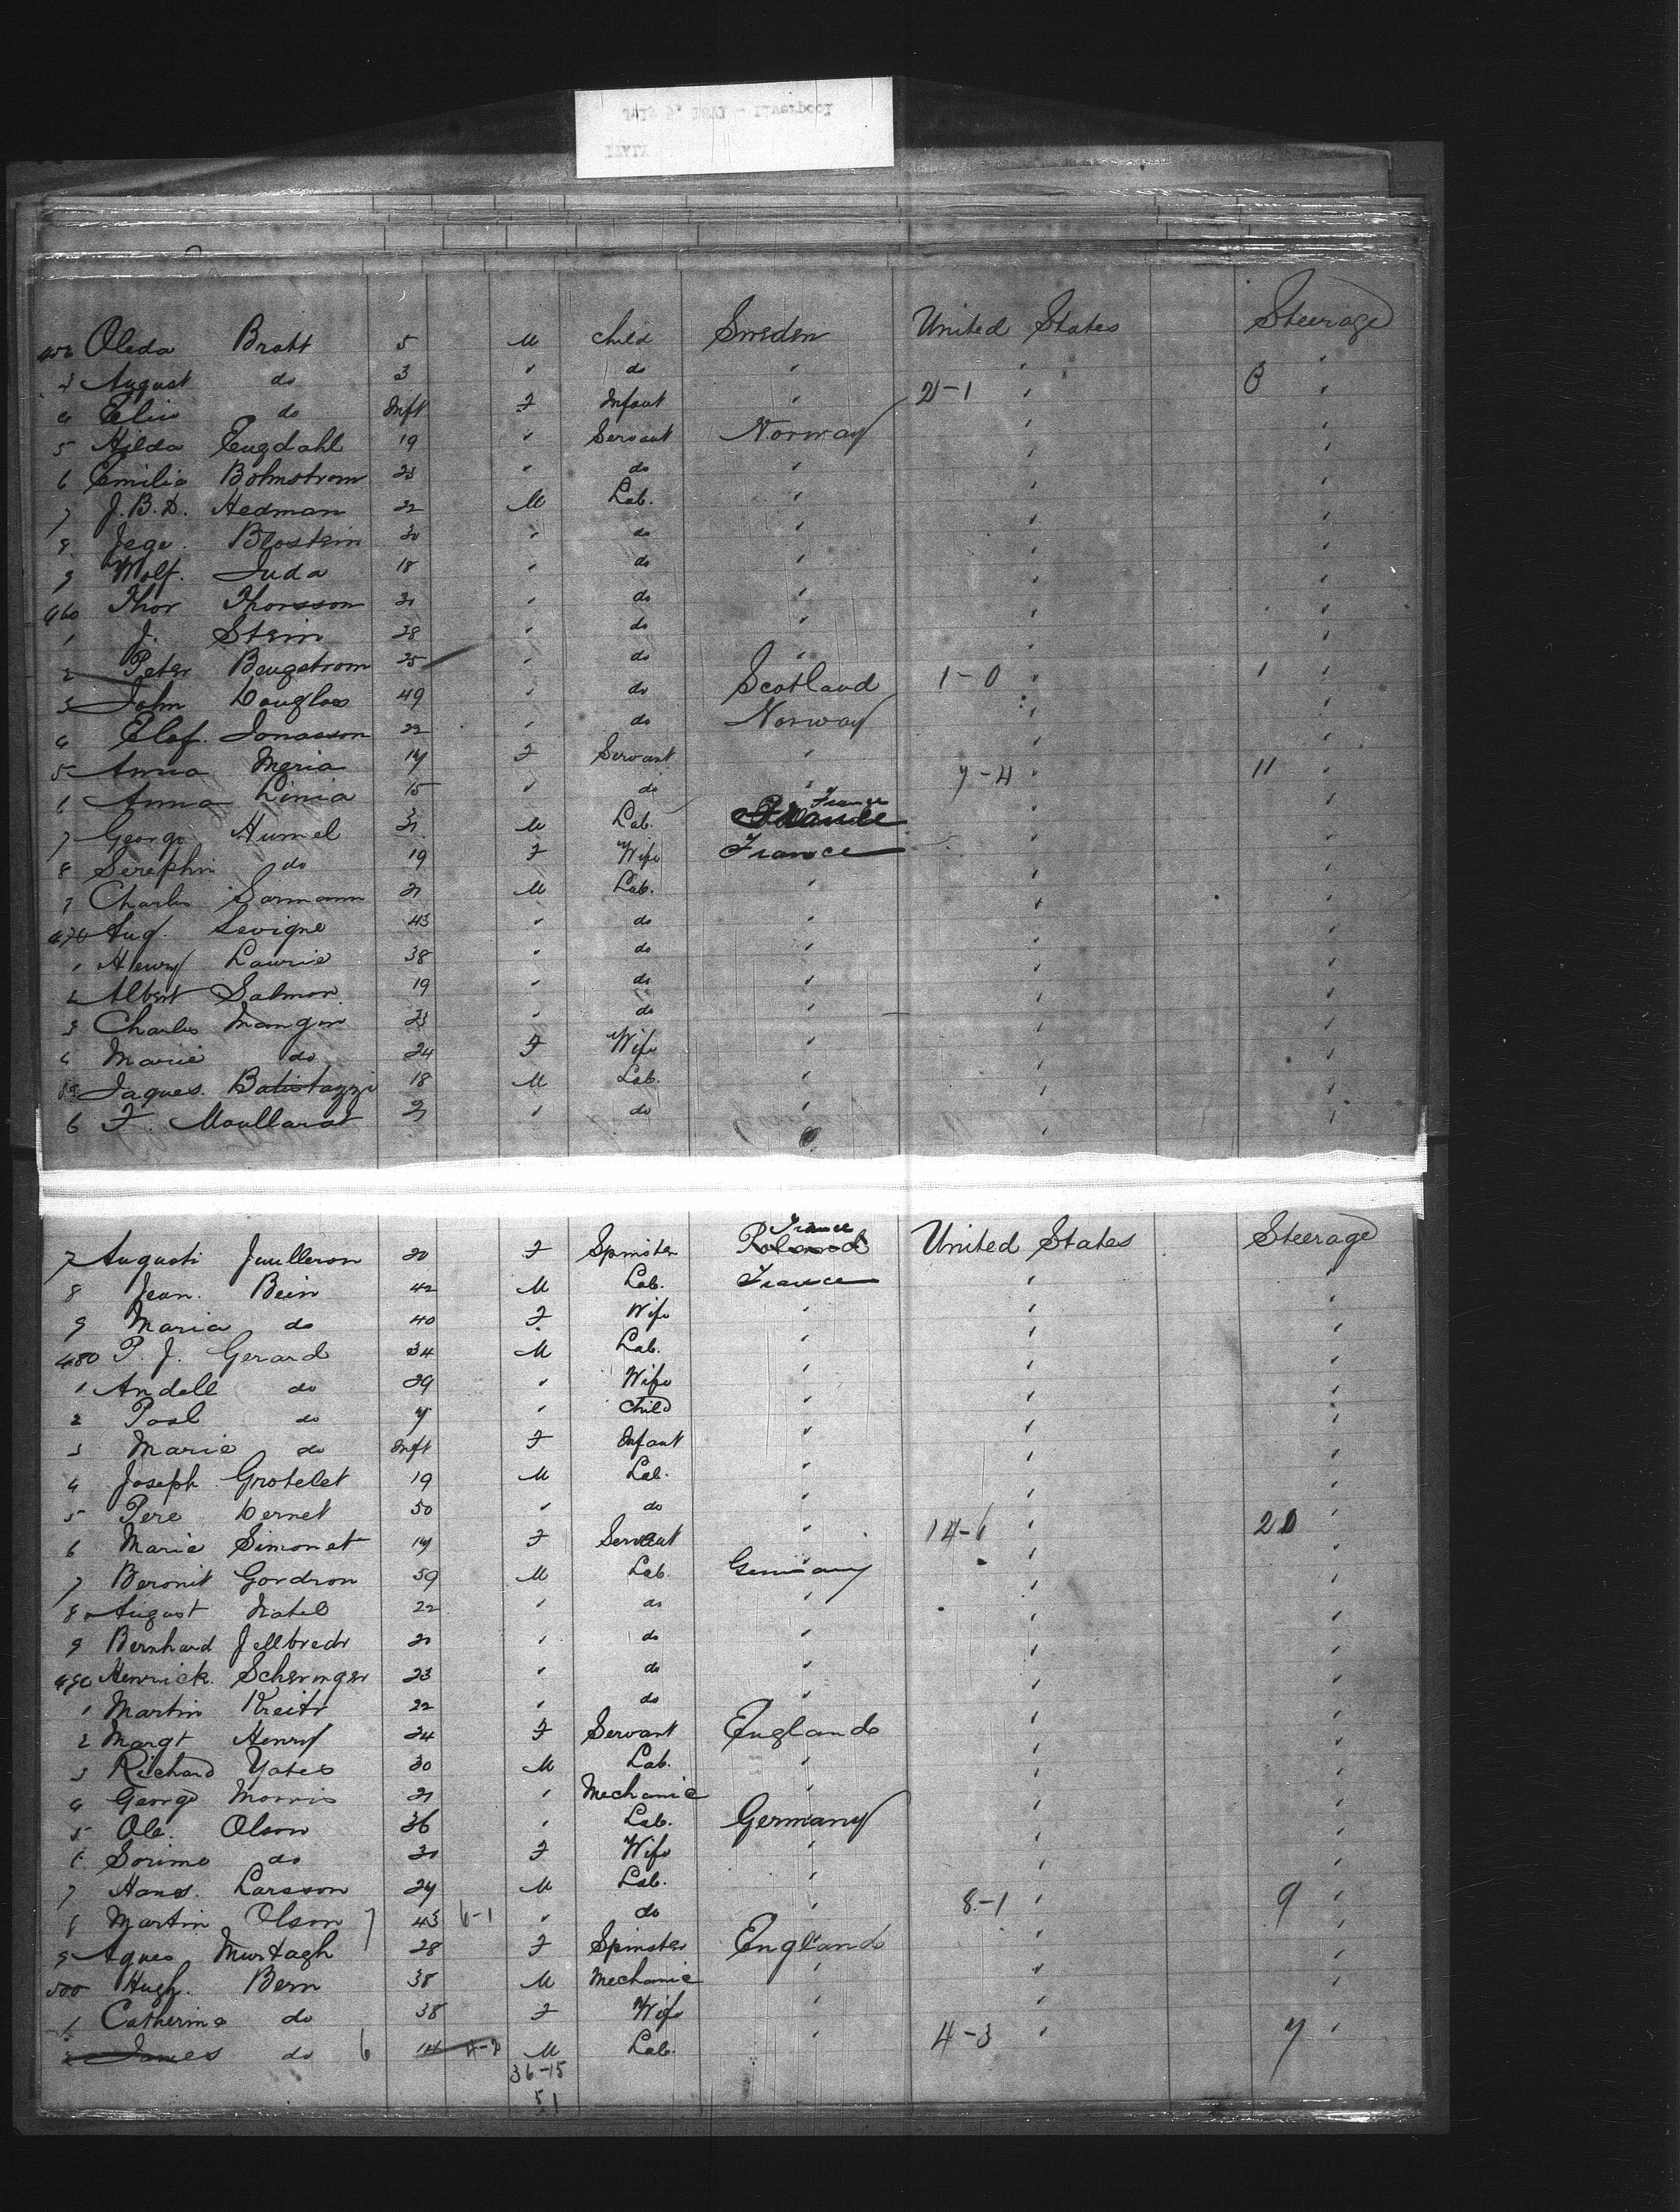 452 Oleda Bratt 5 M Child Sweden United States Steerage
3 August do 3 " do " " "
4 Elin do Inft F Infant " 2-1 " 3 "
5 Hilda Engdahl 19 " Servant Norway " "
6 Emilia Bohmstrom 23 " do " " "
7 J. B. D. Hedman 22 M Lab. " " "
8 Jege. Blostein 30 " do " " "
9 Wolf. Juda 18 " do " " "
460 Thor Thorsson 21 " do " " "
1 J. Stein 28 " do " " "
2 Peter Bengstrom 25 " do " " "
3 John Douglas 49 " do Scotland 1-0 " 1 "
4 Elef. Jonasson 22 " do Norway " "
5 Anna Maria 17 F Servant " " "
6 Anna Linia 15 " do " 7-4 " 11 "
7 George Humel 31 M Lab. France " "
8 Seraphin do 19 F Wife France " "
9 Charles Sormann 21 M Lab. " " "
470 Aug. Sevigne 43 " do " " "
1 Henry Laurie 38 " do " " "
2 Albert Salmon 19 " do " " "
3 Charles Mangin 23 " do " " "
4 Marie do 24 F Wife " " "
5 Jaques Batistazzi 18 M Lab. " " "
6 F. Moullarat 21 " do " " "
7 Augusti Juilleron 20 F Spinster Poland France United States Steerage
8 Jean. Bein 42 M Lab. France " "
9 Maria do 40 F Wife " " "
480 P. J. Gerard 34 M Lab. " " "
1 Andell do 29 " Wife " " "
2 Paul do 7 " Child " " "
3 Marie do Inft F Infant " " "
4 Joseph Grotelet 19 M Lab. " " "
5 Pere Dernet 50 " do " " "
6 Marie Simonet 17 F Servant " 14-6 " 20 "
7 Beronit Gordron 59 M Lab. Germany " "
8 August Natel 22 " do " " "
9 Bernhard Jellbredr 21 " do " " "
490 Henrick Scheringer 23 " do " " "
1 Martin Kreitz 22 " do " " "
2 Margt Henry 24 F Servant England " "
3 Richard Yates 30 M Lab. " " "
4 George Morris 21 " Mechanic " " "
5 Ole. Olson 36 " Lab. Germany " "
6 Sorime do 30 F Wife " " "
7 Hans. Larsson 24 M Lab. " " "
8 Martin Olson 7 43 6-1 " do " 8-1 " 9 "
9 Agnes Murtagh 28 F Spinster England " "
500 Hugh. Bern 38 M Mechanic " " "
1 Catherine do 38 F Wife " " "
2 James do 6 14 4-2 M Lab. " 4-3 " 7 "
36-15
51